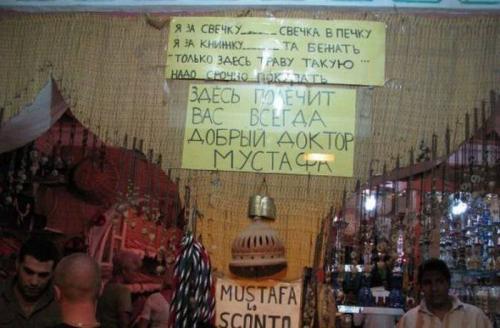 Я ЗА СВЕЧКУ......... СВЕЧКА В ПЕЧКУ
Я ЗА КНИЖКУ.........ТА БЕЖАТЬ
"ТОЛЬКО ЗДЕСЬ ТРАВУ ТАКУЮ"...
НАДО СРОЧНО ПОКУПАТЬ
ЗДЕСЬ ПОЛЕЧИТ
ВАС ВСЕГДА
ДОБРЫЙ ДОКТОР
МУСТАФА
MUSTAFA
lo
SCONTO